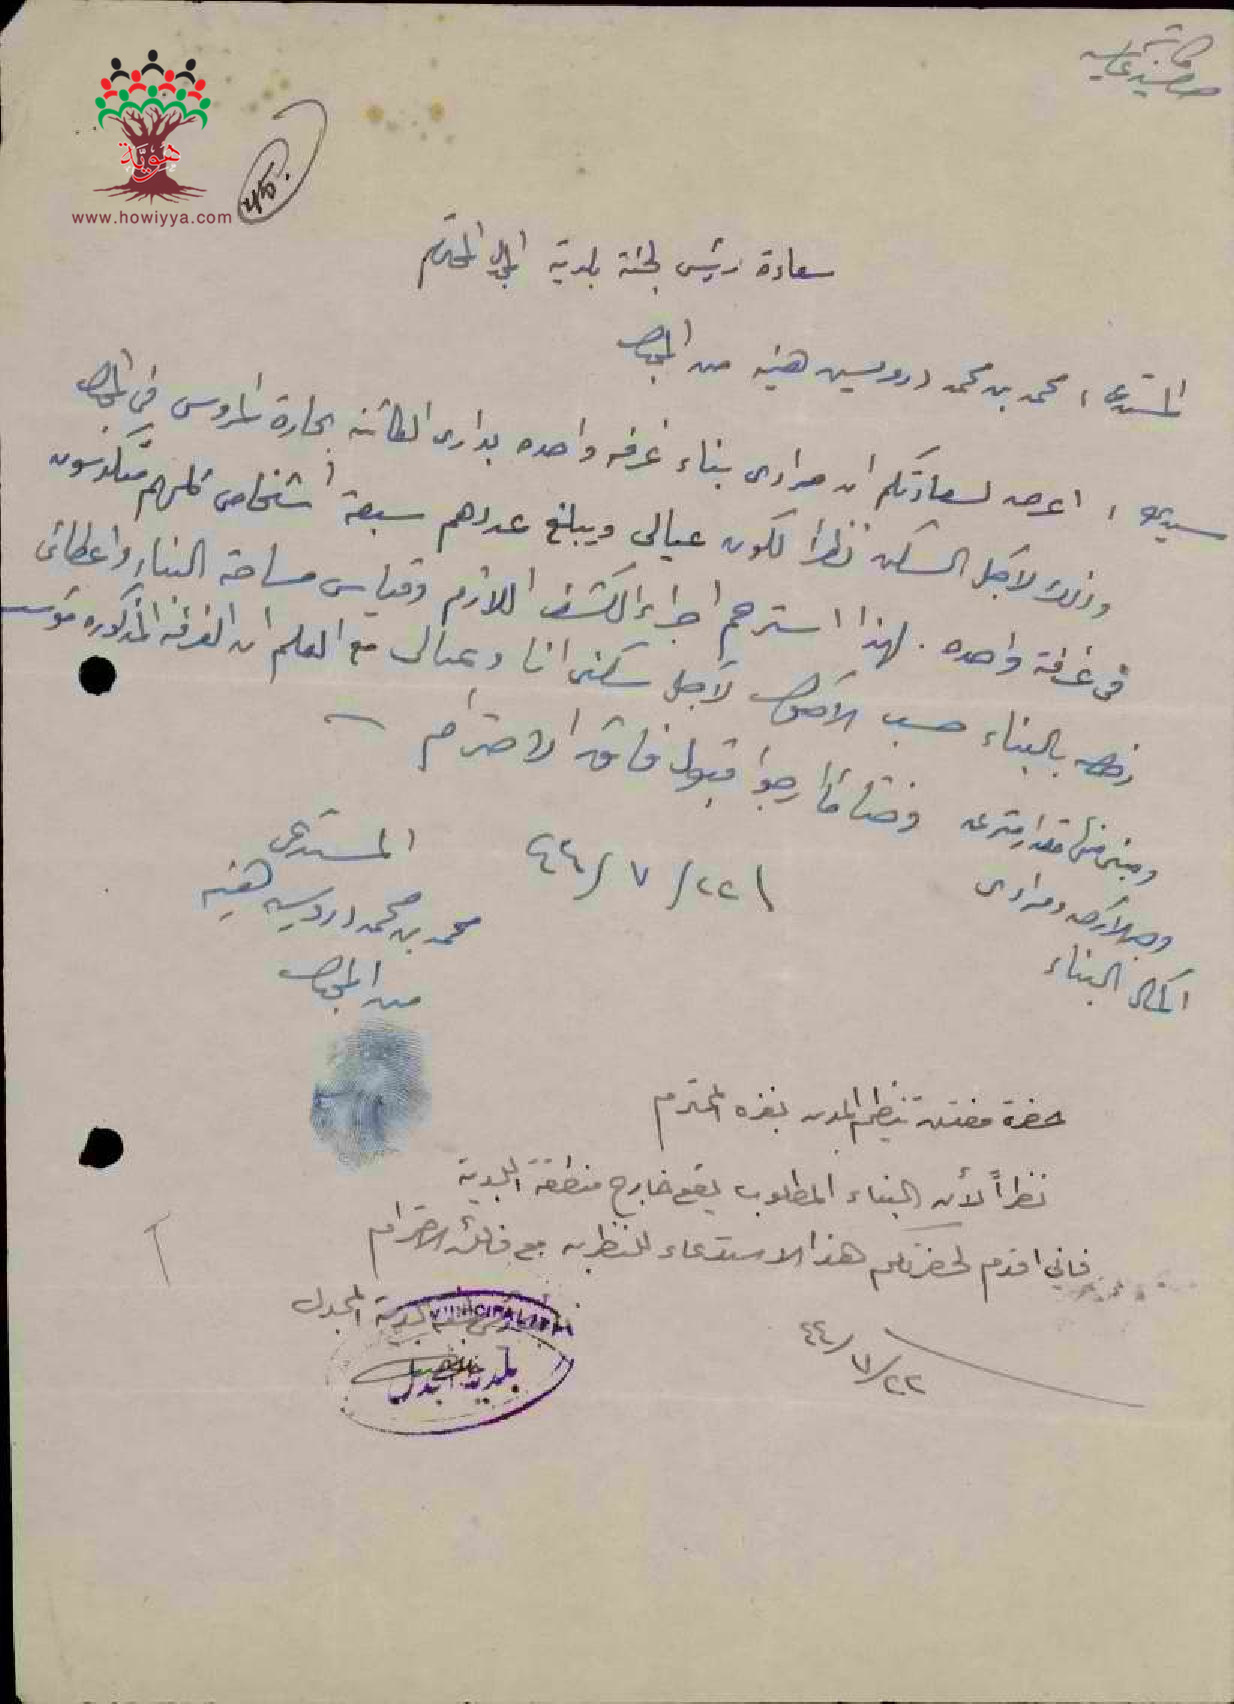 هوية
www.howiyya.com
سعادة رئيس لجنة بلدية المجدل المحترم
المستدعي، محمد بن محمد درويش هنيه من المجدل
سيدي، اعرض لسعادتكم ان مرادي بناء غرفه واحده بداري الكائنه بحارة في المجدل
وذلك لاجل السكن نظرا لكون عيالي ويبلغ عددهم سبعة اشخاص كلهم متكدسون
في غرفة واحده. لهذا استرحم اجراء الكشف اللازم وقياس مساحة البناء واعطائي
رخصه بالبناء حسب الاصول لاجل سكني انا وعيالي مع العلم ان الغرفه المذكوره
ومبني منها مقدار مترين
ومرادي
اكمال البناء
وختاما ارجوا قبول فائق الاحترام
٢٢/٧/٤٤
المستدعي
محمد بن محمد درويش هنيه
من المجدل
حضرة مفتش تنظيم المدن بغزه المحترم
نظراً لأن البناء المطلوب يقع خارج منطقة البلدية
فاني اقدم لحضرتكم هذا الاستدعاء للنظر به مع فائق الاحترام
رئيس لجنة بلدية المجدل
MUNICIPALITY
بلدية المجدل
٢٢/٧/٤٤